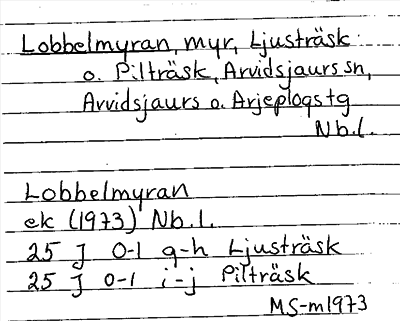 Lobbelmyran, myr, Ljusträsk
o. Pilträsk, Arvidsjaurs sn,
Arvidsjaurs o. Arjeplogs tg
Nb.l.
Lobbelmyran
ek (1973) Nb.l.
25 J 0-1 g-h Ljusträsk
25 J 0-1 i-j Pilträsk
MS-m1973